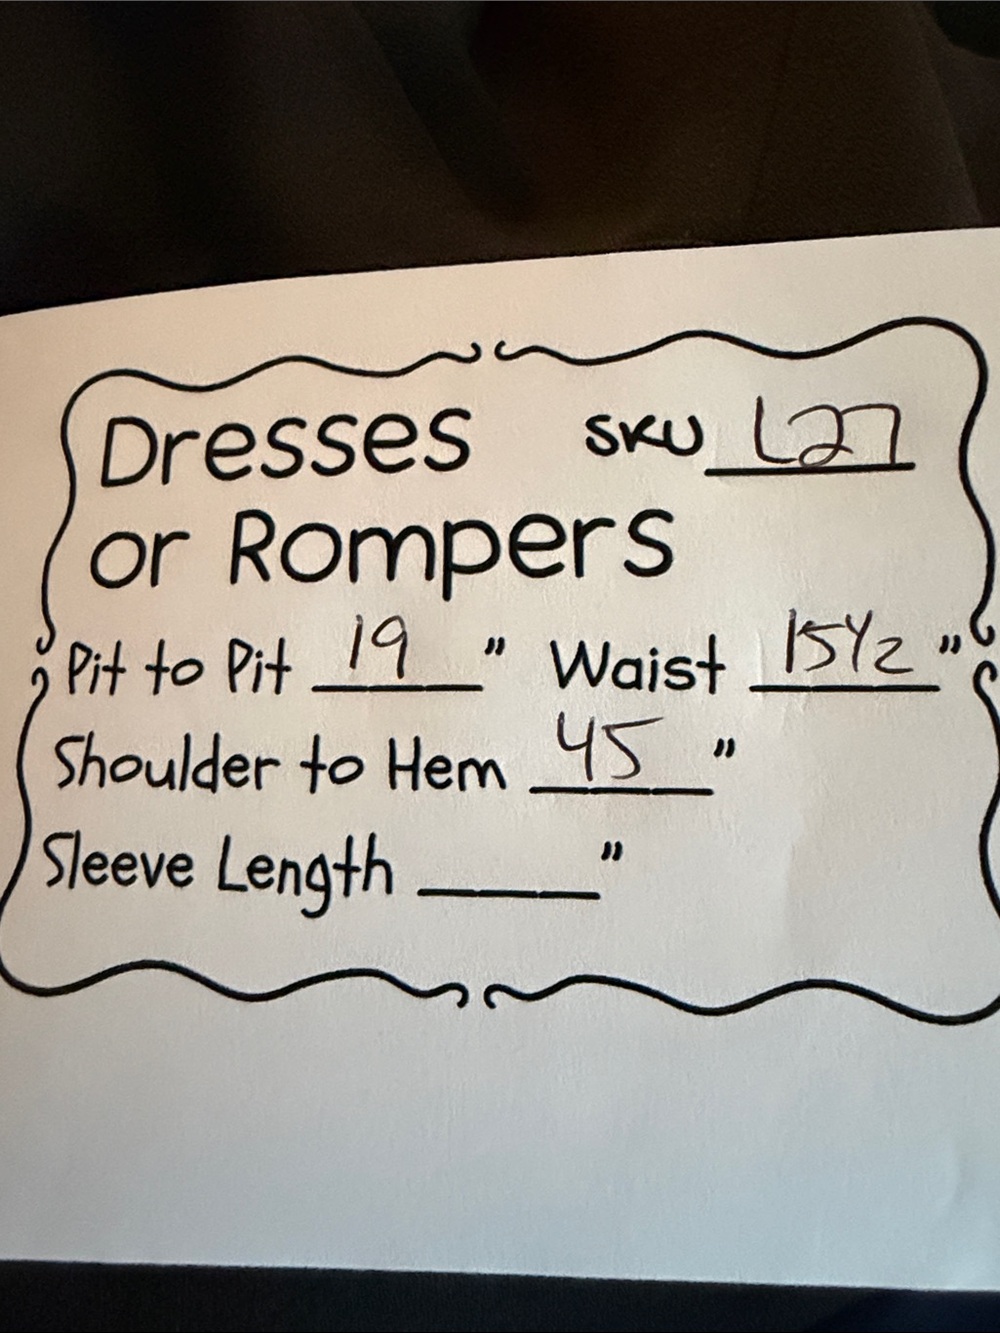 Dresses SKU L27
or Rompers
Pit to Pit 19 " Waist 15 1/2 "
Shoulder to Hem 45 "
Sleeve Length ______ "